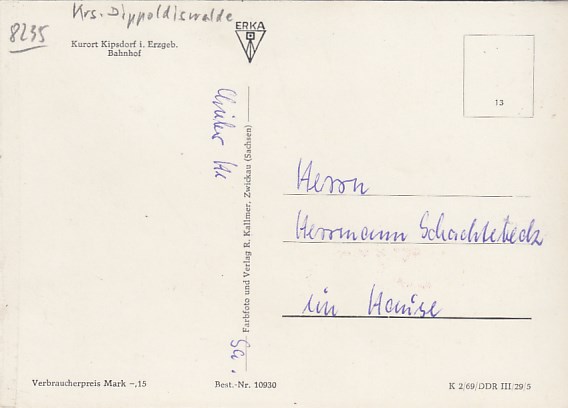 Krs. Dippoldiswalde
8235
Kurort Kipsdorf i. Erzgeb.
Bahnhof
ERKA
13
Farbfoto und Verlag R. Kallmer, Zwickau (Sachsen)
Herrn
Herrmann Schachtebeck
im Hause
Verbraucherpreis Mark -,15
Best.-Nr. 10930
K 2/69/DDR III/29/5